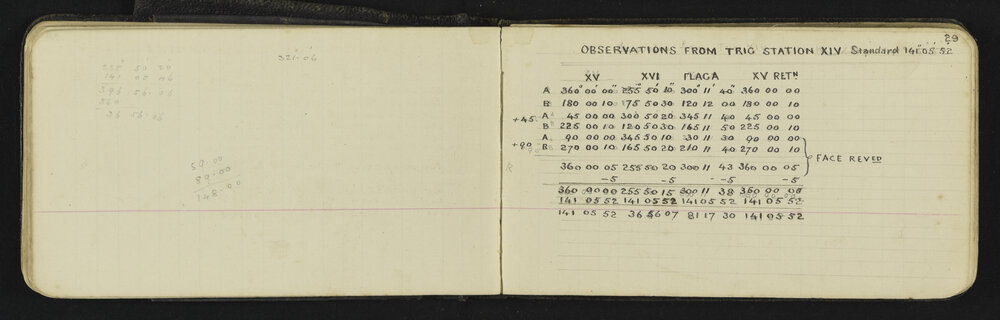 321.06
255 50 20
141 00 06
396 56.06
360
36 56.06
59 00
89.00
148.00
29
OBSERVATIONS FROM TRIG STATION XIV Standard 141° 05' 52
XV XVI FLAG A XV RETN
A 360° 00' 00" 255 50 10" 300° 11' 40" 360 00 00
B 180 00 10 75 50 30 120 12 00 180 00 10
+45 A 45 00 00 300 50 20 345 11 40 45 00 00
B 225 00 10 120 50 30 165 11 50 225 00 10
A 90 00 00 345 50 10 30 11 30 90 00 00
+90 B 270 00 10 165 50 20 210 11 40 270 00 10
FACE REVED
R 360 00 05 255 50 20 300 11 43 360 00 05
-5 -5 -5 -5
360 00 00 255 50 15 300 11 38 360 00 00
141 05 52 141 05 52 141 05 52 141 05 52
141 05 52 36 56 07 81 17 30 141 05 52